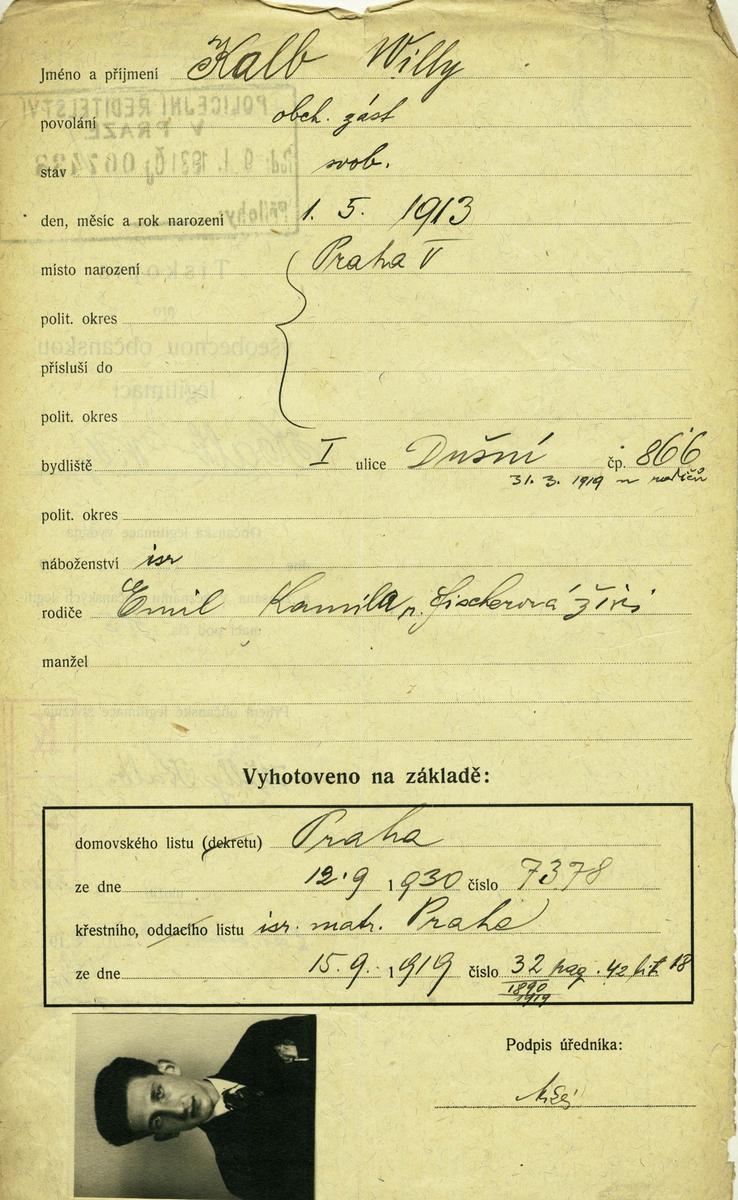 Jméno a příjmení Kalb Willy
povolání obch. zást
stav svob.
den, měsíc a rok narození 1. 5. 1913
místo narození Praha V
polit. okres
přísluší do
polit. okres
bydliště I ulice Dušní čp. 866
31. 3. 1919 u rodičů
polit. okres
náboženství isr
rodiče Emil Kamila r. Fischerová živi
manžel
Vyhotoveno na základě:
domovského listu (dekretu) Praha
ze dne 12.9 1930 číslo 7378
křestního, oddacího listu isr. matr. Praha
ze dne 15.9. 1919 číslo 32 pag. 42 lit. 18
1890
1919
Podpis úředníka:
POLICEJNÍ ŘEDITELSTVÍ
V PRAZE
Přílohy
Tiskopis
pro
všeobecnou občanskou
legitimaci